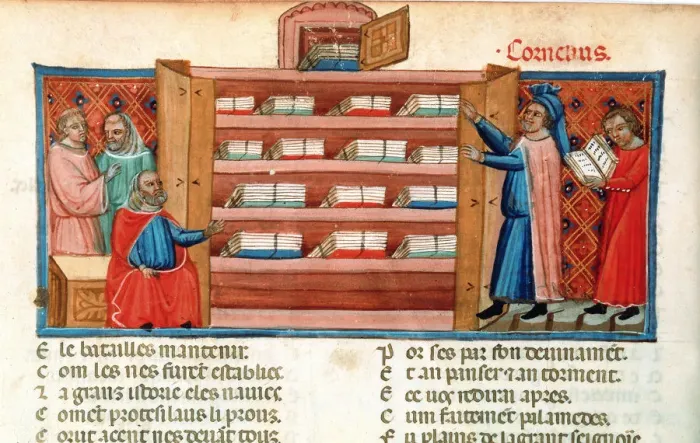 Cornelius.
E le batailles mantenir.
C om les nes furẽt establies.
L a grans istorie eles nauies.
C omẽt protesilaus li prous.
C orut a cent nes deuãt tous.
P or ses par son deuinamẽt.
E t an panser ⁊ an torment.
E ce uos redirai apres.
C um faitemẽt palamedes.
F u plains de la grant seignorie